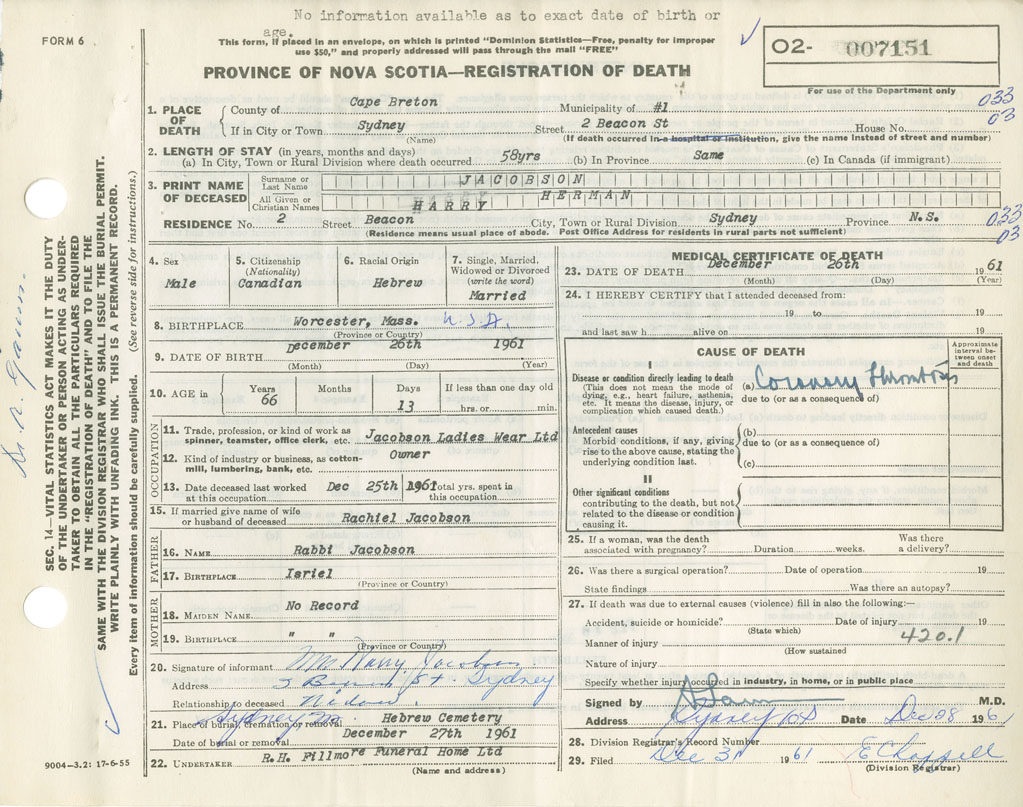 No information available as to exact date of birth or
age.
FORM 6
This form, if placed in an envelope, on which is printed "Dominion Statistics—Free, penalty for improper
use $50," and properly addressed will pass through the mail "FREE"
O2- 007151
For use of the Department only
PROVINCE OF NOVA SCOTIA—REGISTRATION OF DEATH
1. PLACE OF DEATH { County of Cape Breton Municipality of #1 033
If in City or Town Sydney Street 2 Beacon St House No. 03
(Name) (If death occurred in a hospital or institution, give the name instead of street and number)
2. LENGTH OF STAY (in years, months and days)
(a) In City, Town or Rural Division where death occurred 58yrs (b) In Province Same (c) In Canada (if immigrant)
3. PRINT NAME OF DECEASED
Surname or Last Name JACOBSON
All Given or Christian Names HARRY HERMAN
RESIDENCE No. 2 Street Beacon City, Town or Rural Division Sydney Province N.S. 033
(Residence means usual place of abode. Post Office Address for residents in rural parts not sufficient) 03
4. Sex Male
5. Citizenship (Nationality) Canadian
6. Racial Origin Hebrew
7. Single, Married, Widowed or Divorced (write the word) Married
8. BIRTHPLACE Worcester, Mass. U.S.A.
(Province or Country)
9. DATE OF BIRTH December 26th 1961
(Month) (Day) (Year)
10. AGE in Years 66 Months Days 13 If less than one day old hrs. or min.
OCCUPATION
11. Trade, profession, or kind of work as spinner, teamster, office clerk, etc. Jacobson Ladies Wear Ltd
12. Kind of industry or business, as cotton-mill, lumbering, bank, etc. Owner
13. Date deceased last worked at this occupation Dec 25th 1961 Total yrs. spent in this occupation
15. If married give name of wife or husband of deceased Rachiel Jacobson
FATHER
16. NAME Rabbi Jacobson
17. BIRTHPLACE Isriel
(Province or Country)
MOTHER
18. MAIDEN NAME No Record
19. BIRTHPLACE " "
(Province or Country)
20. Signature of informant Mrs Harry Jacobson
Address St. Sydney
Relationship to deceased Widow.
21. Place of burial, cremation or removal Sydney Hebrew Cemetery
Date of burial or removal December 27th 1961
22. UNDERTAKER R.H. Fillmore Funeral Home Ltd
(Name and address)
MEDICAL CERTIFICATE OF DEATH
23. DATE OF DEATH December 26th 1961
(Month) (Day) (Year)
24. I HEREBY CERTIFY that I attended deceased from:
19 to 19
and last saw h alive on 19
CAUSE OF DEATH
Approximate interval between onset and death
I
Disease or condition directly leading to death (a) Coronary Thrombosis
(This does not mean the mode of due to (or as a consequence of)
dying, e.g., heart failure, asthenia,
etc. It means the disease, injury, or
complication which caused death.)
Antecedent causes (b)
Morbid conditions, if any, giving due to (or as a consequence of)
rise to the above cause, stating the
underlying condition last. (c)
II
Other significant conditions
contributing to the death, but not
related to the disease or condition
causing it.
25. If a woman, was the death associated with pregnancy? Duration weeks. Was there a delivery?
26. Was there a surgical operation? Date of operation 19
State findings Was there an autopsy?
27. If death was due to external causes (violence) fill in also the following:—
Accident, suicide or homicide? Date of injury 19
(State which) 420.1
Manner of injury
(How sustained
Nature of injury
Specify whether injury occurred in industry, in home, or in public place
Signed by M.D.
Address Sydney Date Dec 28 1961
28. Division Registrar's Record Number
29. Filed Dec 31 1961 E Chappell
(Division Registrar)
SEC. 14—VITAL STATISTICS ACT MAKES IT THE DUTY
OF THE UNDERTAKER OR PERSON ACTING AS UNDER-
TAKER TO OBTAIN ALL THE PARTICULARS REQUIRED
IN THE "REGISTRATION OF DEATH" AND TO FILE THE
SAME WITH THE DIVISION REGISTRAR WHO SHALL ISSUE THE BURIAL PERMIT.
WRITE PLAINLY WITH UNFADING INK. THIS IS A PERMANENT RECORD.
Every item of information should be carefully supplied. (See reverse side for instructions.)
9004—3.2: 17-6-55